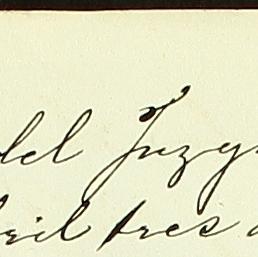 del Juzg
bril tres